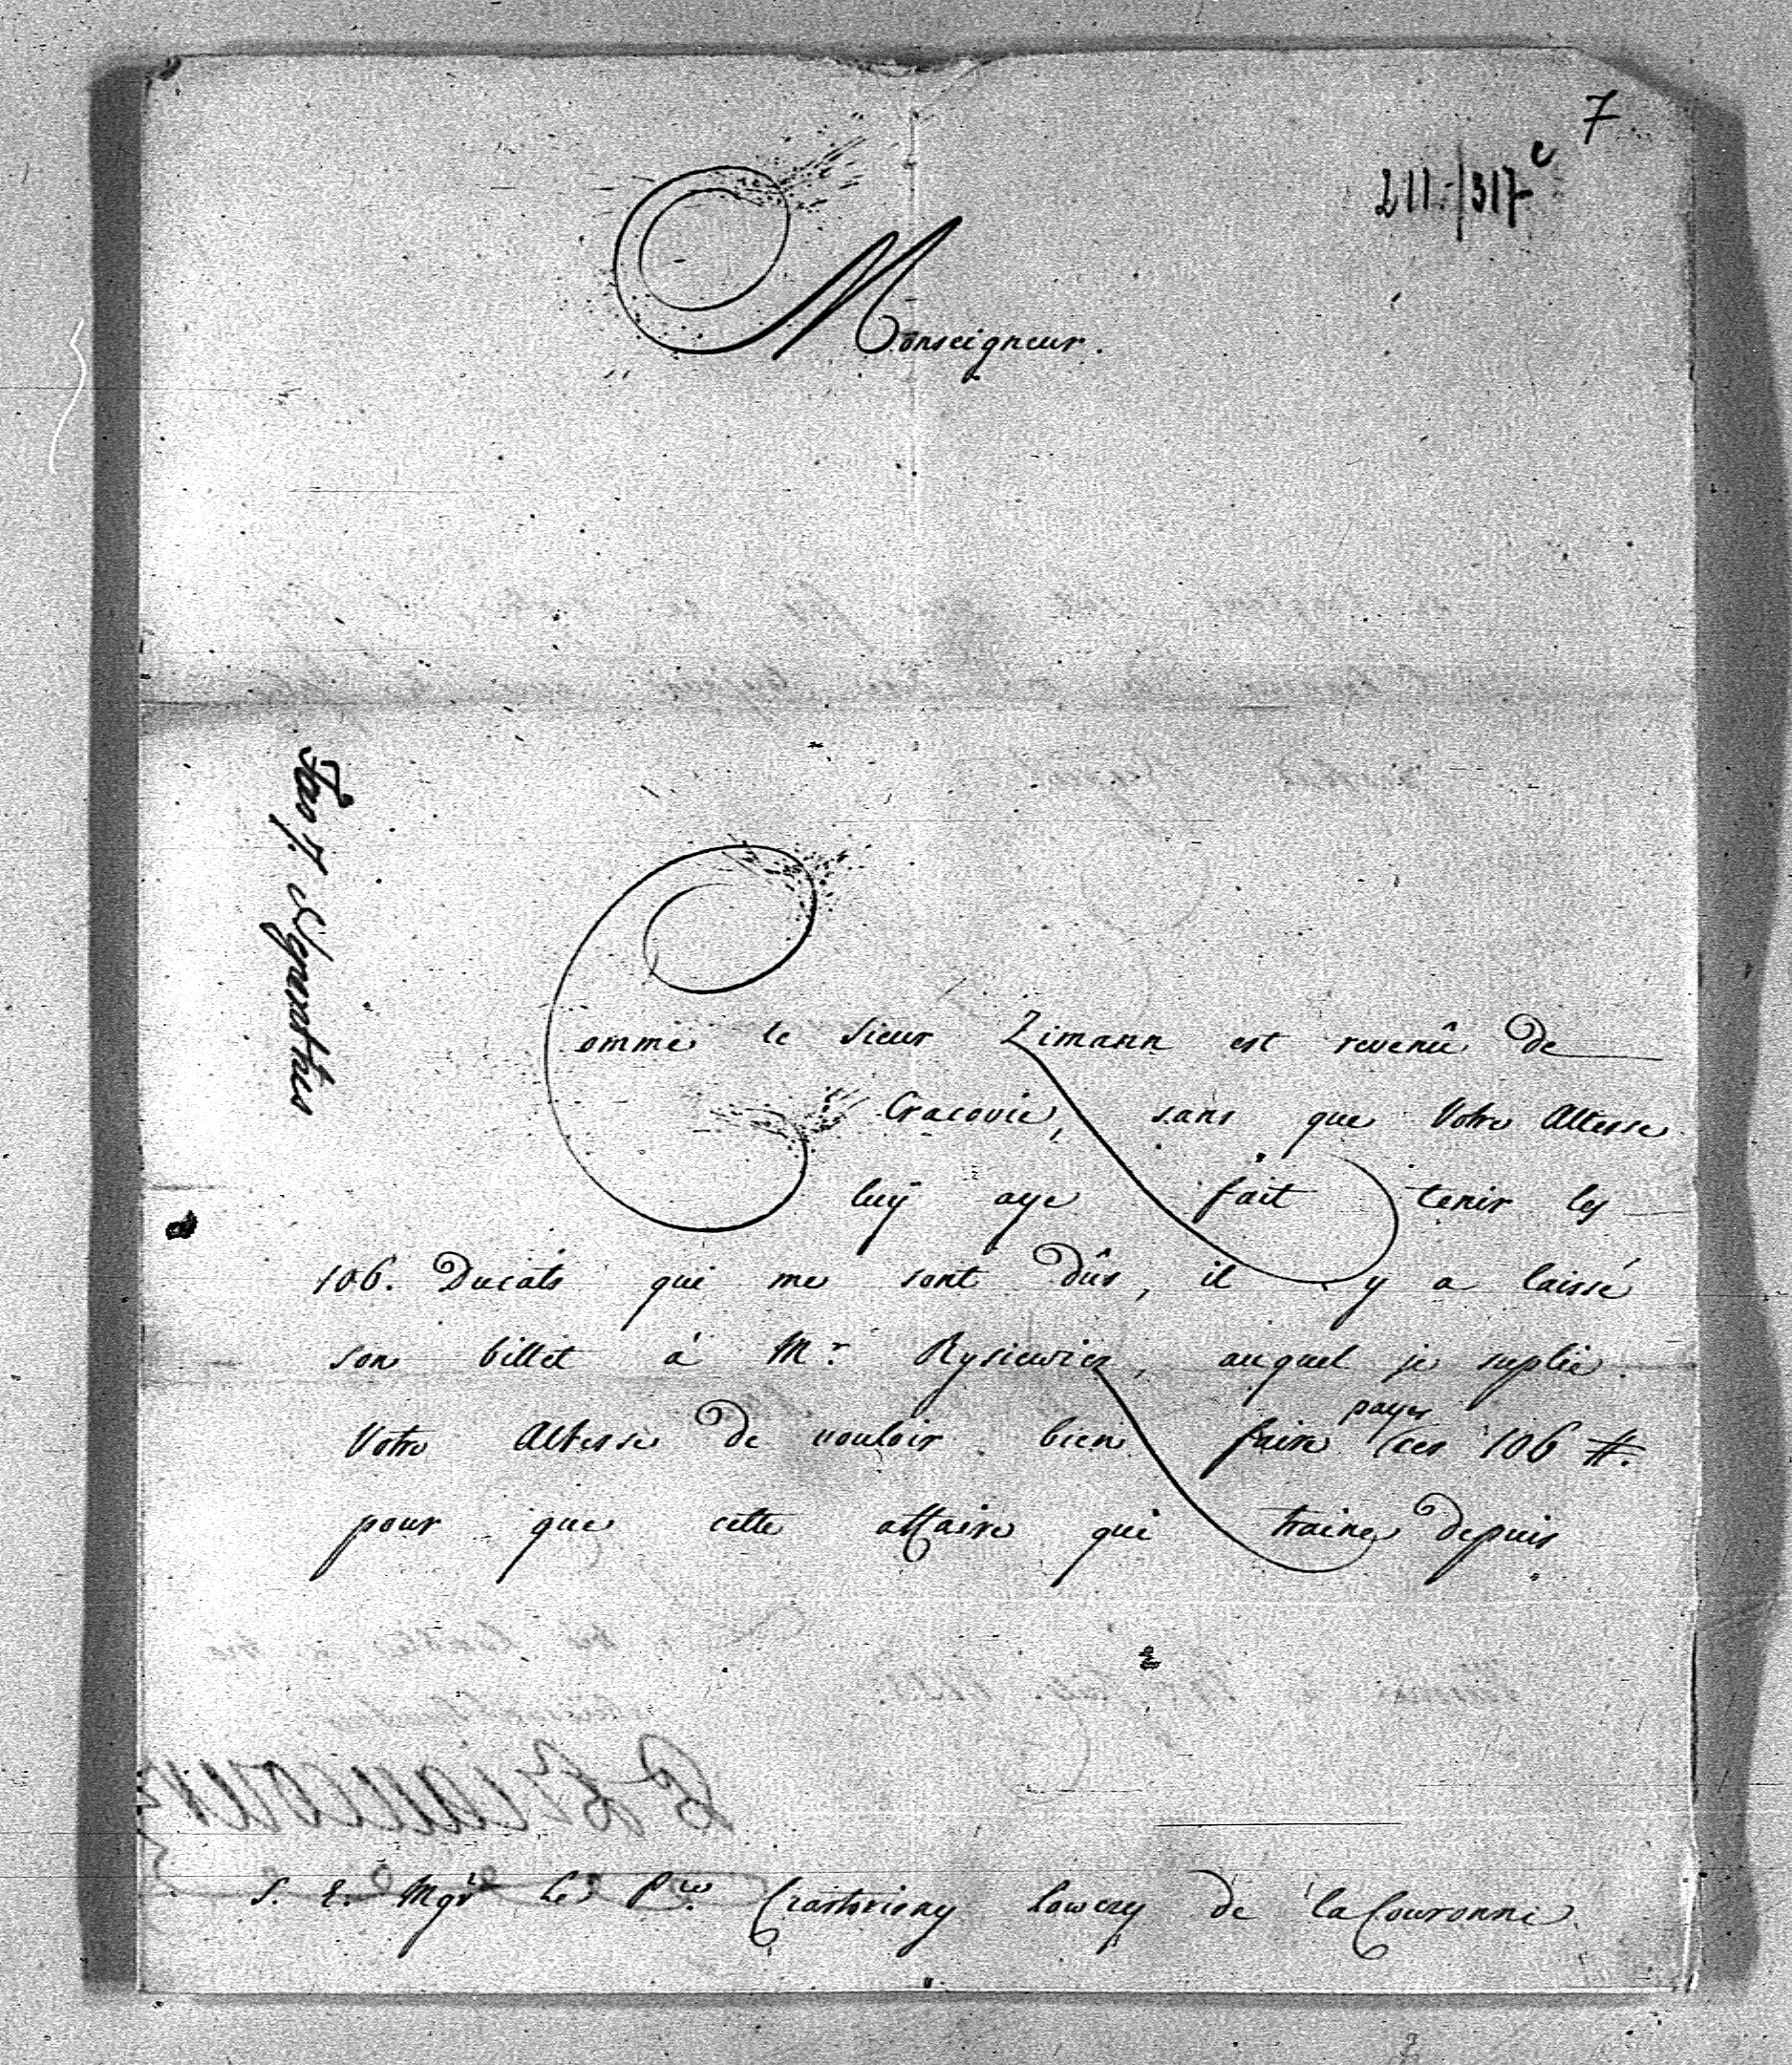 7
211./317 c
Monseigneur.
Comme le Sieur Zimann est revenû de
Cracovie, sans que Votre Altesse
luÿ aye fait tenir les
106. Ducats qui me sont dûs, il y a laissé
son billet à Mr. Rysiewicz, auquel je suplie
Votre Altesse de vouloir bien faire payer ces 106 #.
pour que cette affaire qui traine depuis
S. E. Mgr Le Pce. Czartorisky Lowczy de la Couronne